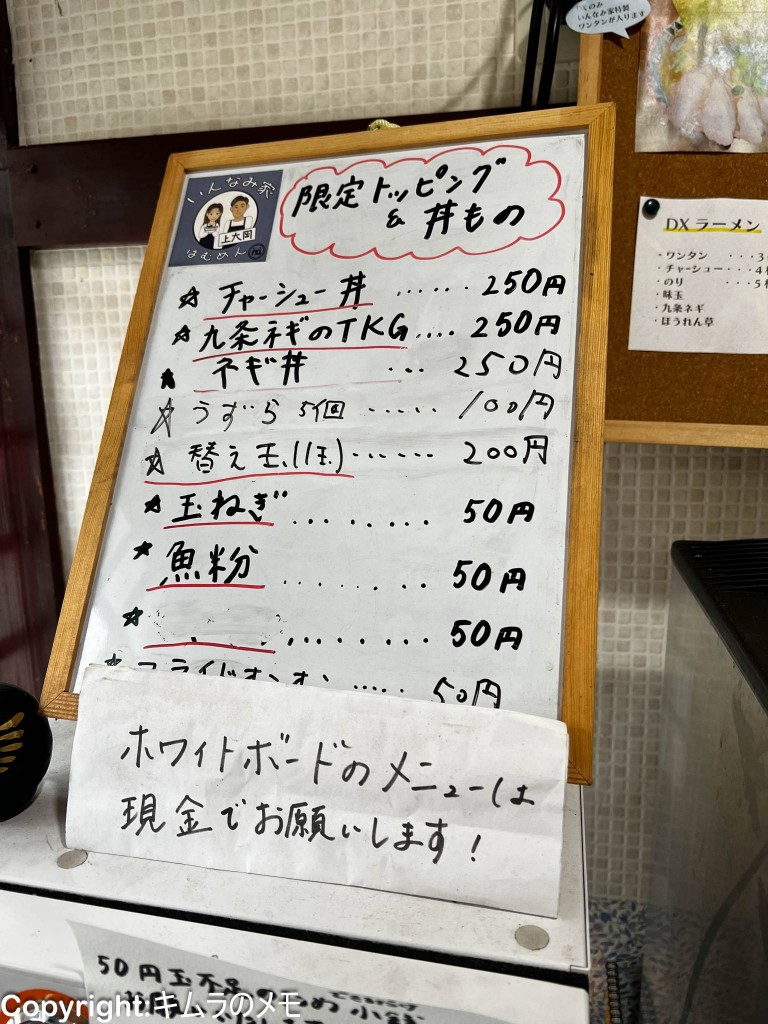 のみ
いんなみ家特製
ワンタンが入ります
いんなみ家
上大岡
はむめん
限定トッピング
& 丼もの
☆ チャーシュー丼 ...... 250円
☆ 九条ネギのTKG.... 250円
★ ネギ丼 ... 250円
☆ うずら 5個 ..... 100円
☆ 替え玉(1玉)...... 200円
★ 玉ねぎ ........ 50円
★ 魚粉 ........ 50円
☆ ........ 50円
★ フライドオニオン ..... 50円
ホワイトボードのメニューは
現金でお願いします!
DX ラーメン
・ワンタン ・・・3
・チャーシュー・・・4
・のり ・・・5
・味玉
・九条ネギ
・ほうれん草
50円玉不足のため小銭
Copyright:キムラのメモ